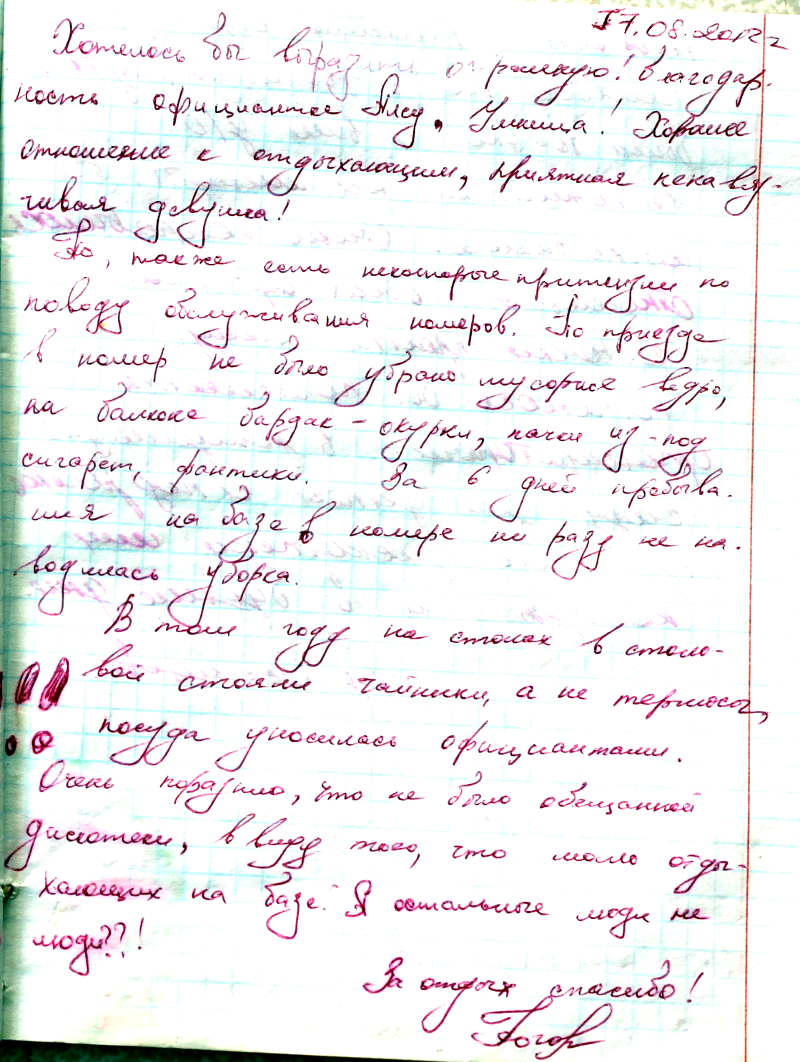 17.08.2012 г
Хотелось бы выразить огромную! благодар-
ность официантке Алсу. Умница! Хорошее
отношение к отдыхающим, приятная ненавяз-
чивая девушка!
Но, также есть некоторые притензии по
поводу обслуживания номеров. До приезда
в номер не было убрано мусорное ведро,
на балконе бардак - окурки, пачки из-под
сигарет, фантики. За 6 дней пребыва-
ния на базе в номере ни разу не на-
водилась уборка.
В том году на столах в столо-
вой стояли чайники, а не термосы,
посуда уносилась официантами.
Очень поразило, что не было обещанной
дискотеки, в виду того, что мало отды-
хающих на базе. А остальные люди не
люди??!
За отдых спасибо!